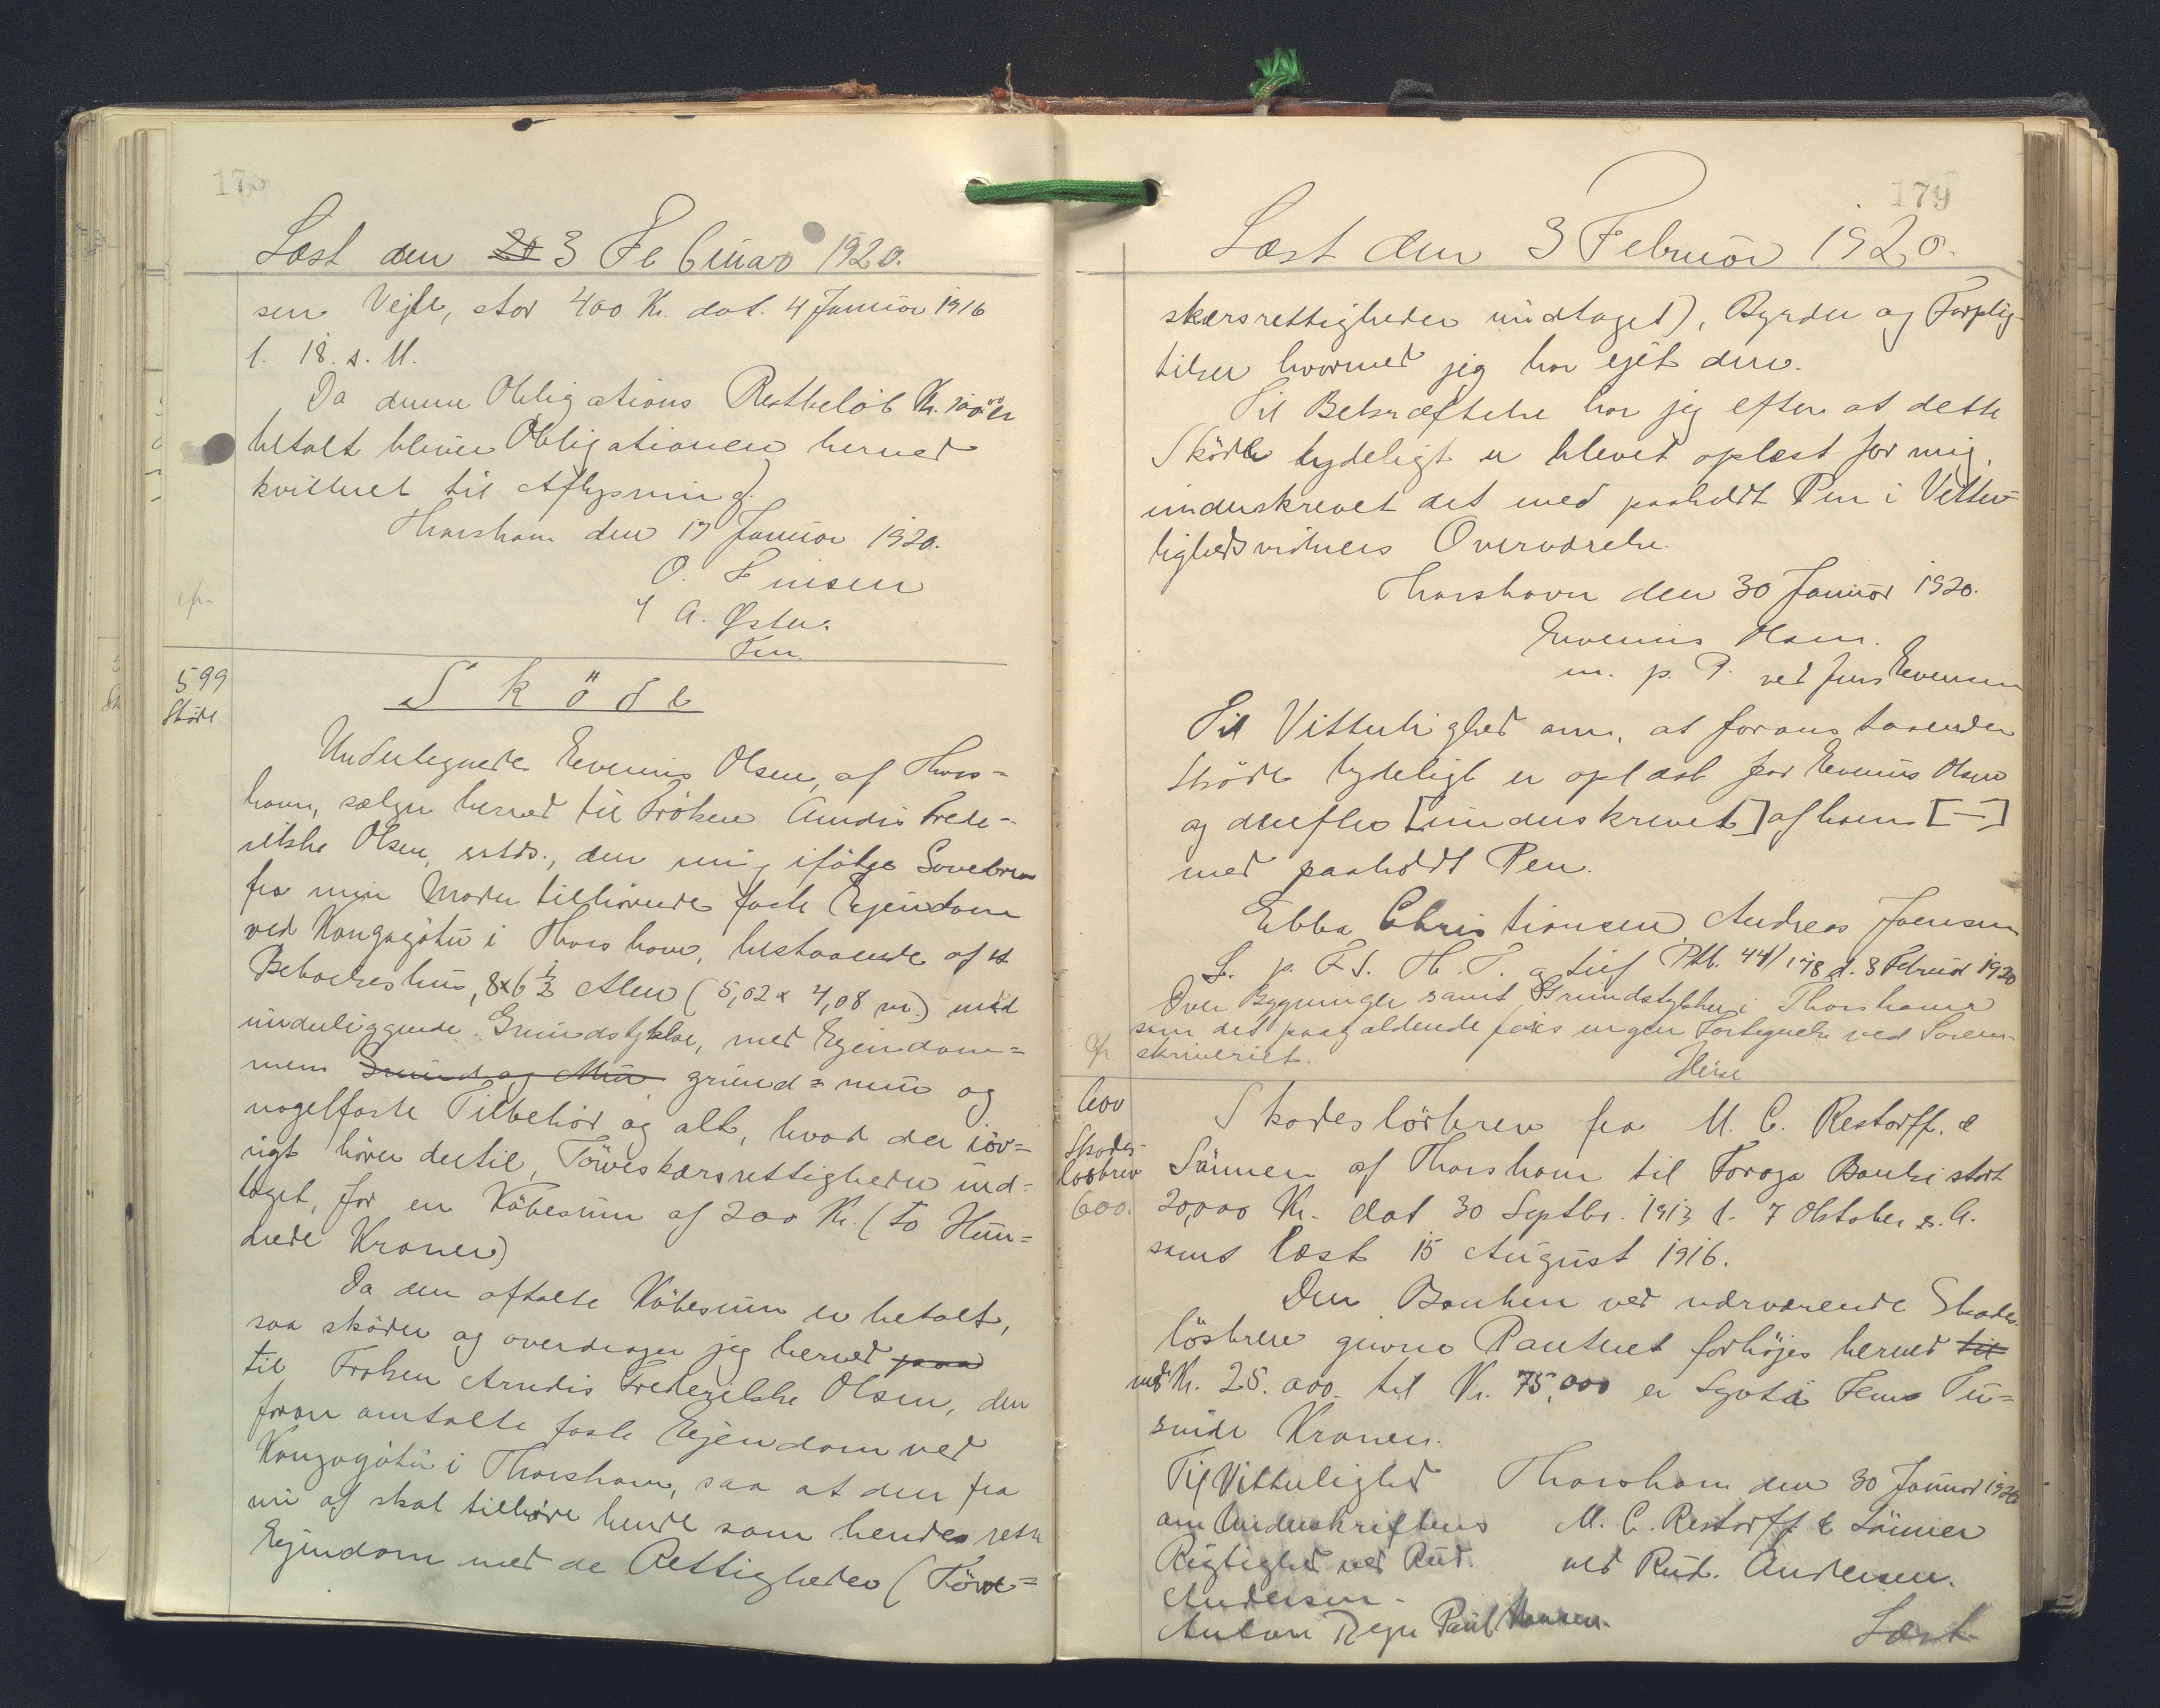 Læst den 20 3 Februar 1920.
sen Vejle, stor 400 Kr. dat. 4 Januar 1916
l. 18. s. M.
Da denne Obligations Restbeløb Kr. 100.00 er
betalt bliver Obligationen herved
kvitteret til Aflysning.
Thorshavn den 17 Januar 1920.
O. Finsen
/ A. Øster.
Fm
599
Sköde
Sköde
Undertegnede Evenius Olsen, af Thors=
havn, sælger herved til Fröken Arndis Frede-
rikke Olsen, smsts., den mig ifölge Gavebrev
fra min Moder tilhörende faste Ejendom
ved Kongagötu i Thorshavn, bestaaende af et
Beboelseshus, 8x6 1/2 Alen (5,02 x 4,08 m.) med
underliggende Grundstykke, med Ejendom=
mens Grund og Mur grund= mur og
nagelfaste Tilbehör og alt, hvad der iöv=
rigt hörer dertil, Törveskærsrettigheder und=
taget, for en Köbesum af 200 Kr. (to Hun=
drede Kroner)
Da den aftalte Köbesum er betalt,
saa sköder og overdrager jeg herved
til Fröken Arndis Frederikke Olsen, den
foran omtalte faste Ejendom ved
Kongagötu i Thorshavn, saa at den fra
nu af skal tilhöre hende som hendes rette
Ejendom med de Rettigheder (Törve=
179
Læst den 3 Februar 1920.
skærsrettigheder undtaget), Byrder og Forplig-
telser hvormed jeg har ejet den.
Til Bekræftelse har jeg efter at dette
Sköde tydeligt er blevet oplæst for mig,
underskrevet det med paaholdt Pen i Vitter=
lighedsvidners Overværelse.
Thorshavn den 30 Januar 1920.
Evenius Olsen.
m. p. P. ved Jens Evensen
Til Vitterlighed om, at foranstaaende
Sköde tydeligt er oplæst for Evenius Olsen
og derefter [underskrevet] af ham [—]
med paaholdt Pen.
Ebba Christiansen, Andreas Joensen
L. p. F. S. H. T. Ptb. 44/178 d. 3 Februar 1920
Over Bygninger samt Grundstykker i Thorshavn
som det paagældende føres ingen Fortegnelse ved Soren-
skriveriet.
600
Skades-
løsbrev
600.
Skadeslösbrev fra M. C. Restorff. &
Sönner af Thorshavn til Foroja Banki stort
20,000 Kr. dat 30 Septbr. 1913 l. 7 Oktober s. A.
samt læst 15 August 1916.
Den Banken ved nærværende Skades-
lösbrev givne Panteret forhöjes herved til
med Kr. 25.000. til Kr. 75,000 er Syvti Fem Tu=
sinde Kroner.
Til Vitterlighed
om Underskriftens
Rigtighed ved Rud.
Andersen.
Anton Degn Paul Hansen.
Thorshavn den 30 Januar 1920
M. C. Restorff & Sönner
ved Rud. Andersen.
Læst